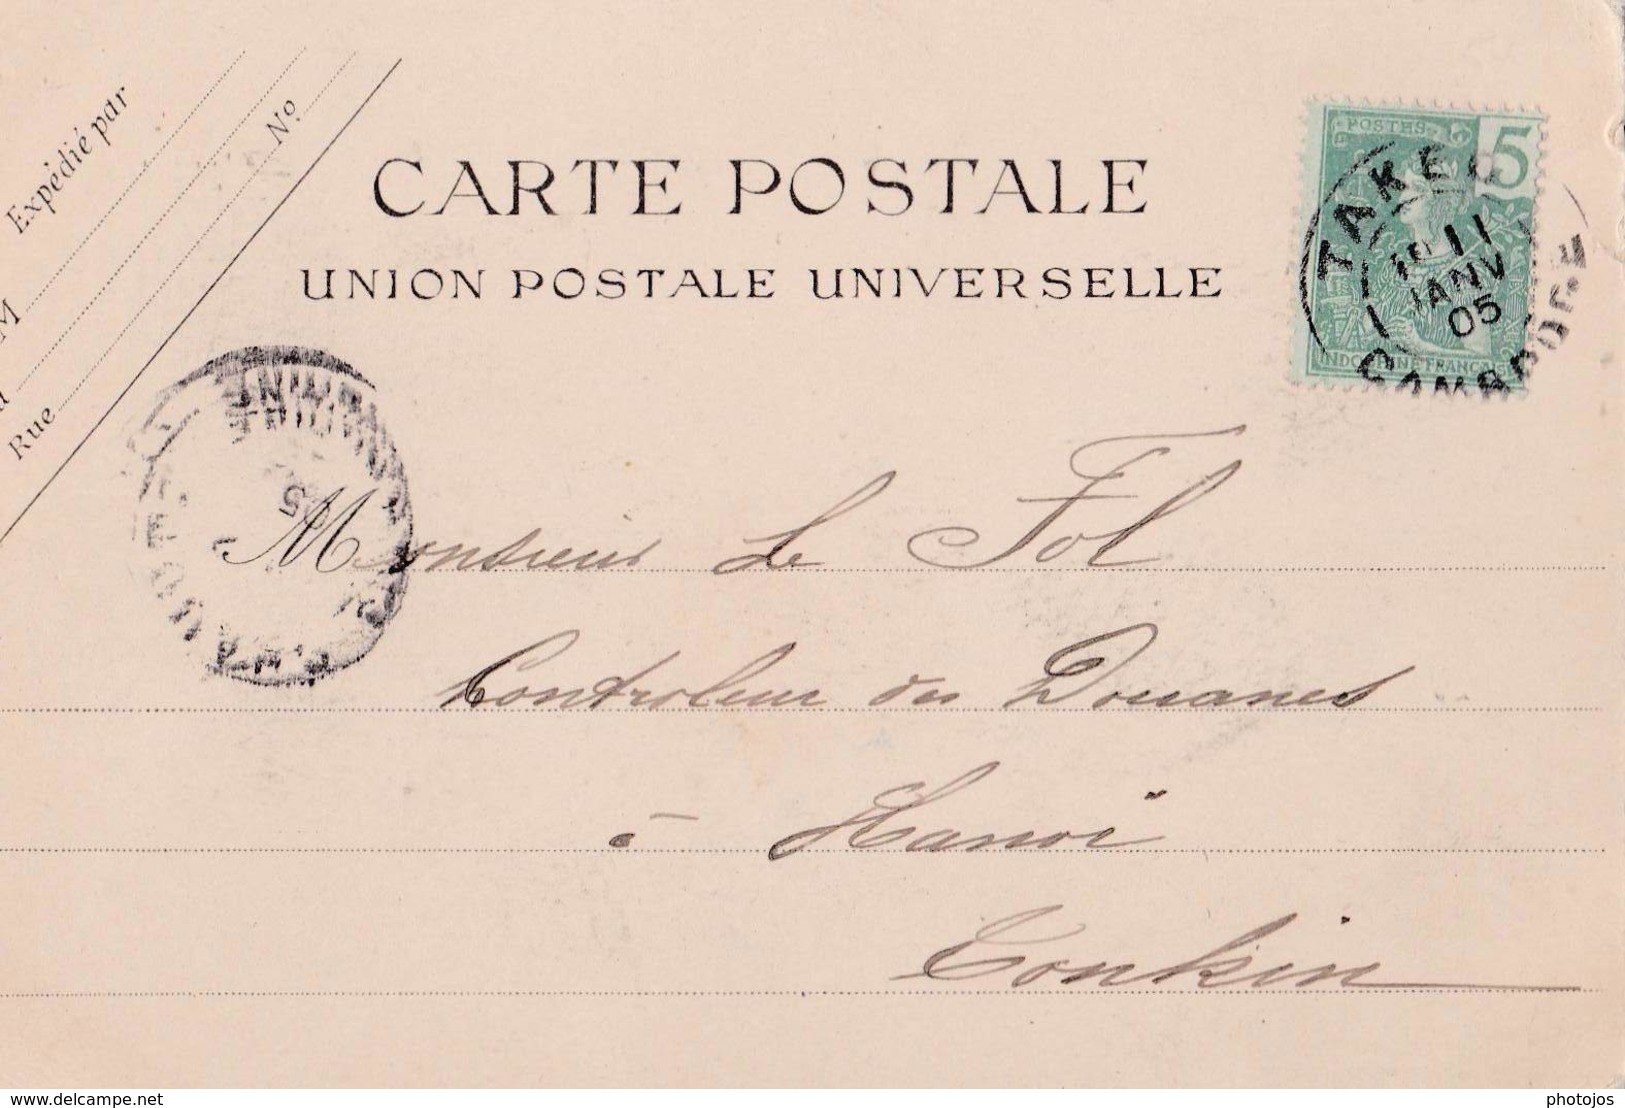 Expédié par
M
Rue
No
CARTE POSTALE
UNION POSTALE UNIVERSELLE
POSTES
5
INDO-CHINE FRANÇAISE
TAKEO
11
JANV
05
CAMBODGE
Monsieur Le Fol
Controleur des Douanes
à Hanoï
Tonkin
www.delcampe.net
photojos